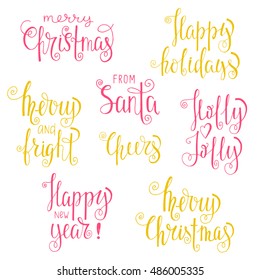 merry
Christmas
Happy
holidays
merry
and
bright
FROM
Santa
Cheers
Holly
Jolly
Happy
NEW
year!
merry
Christmas
shutterstock.com · 486005335